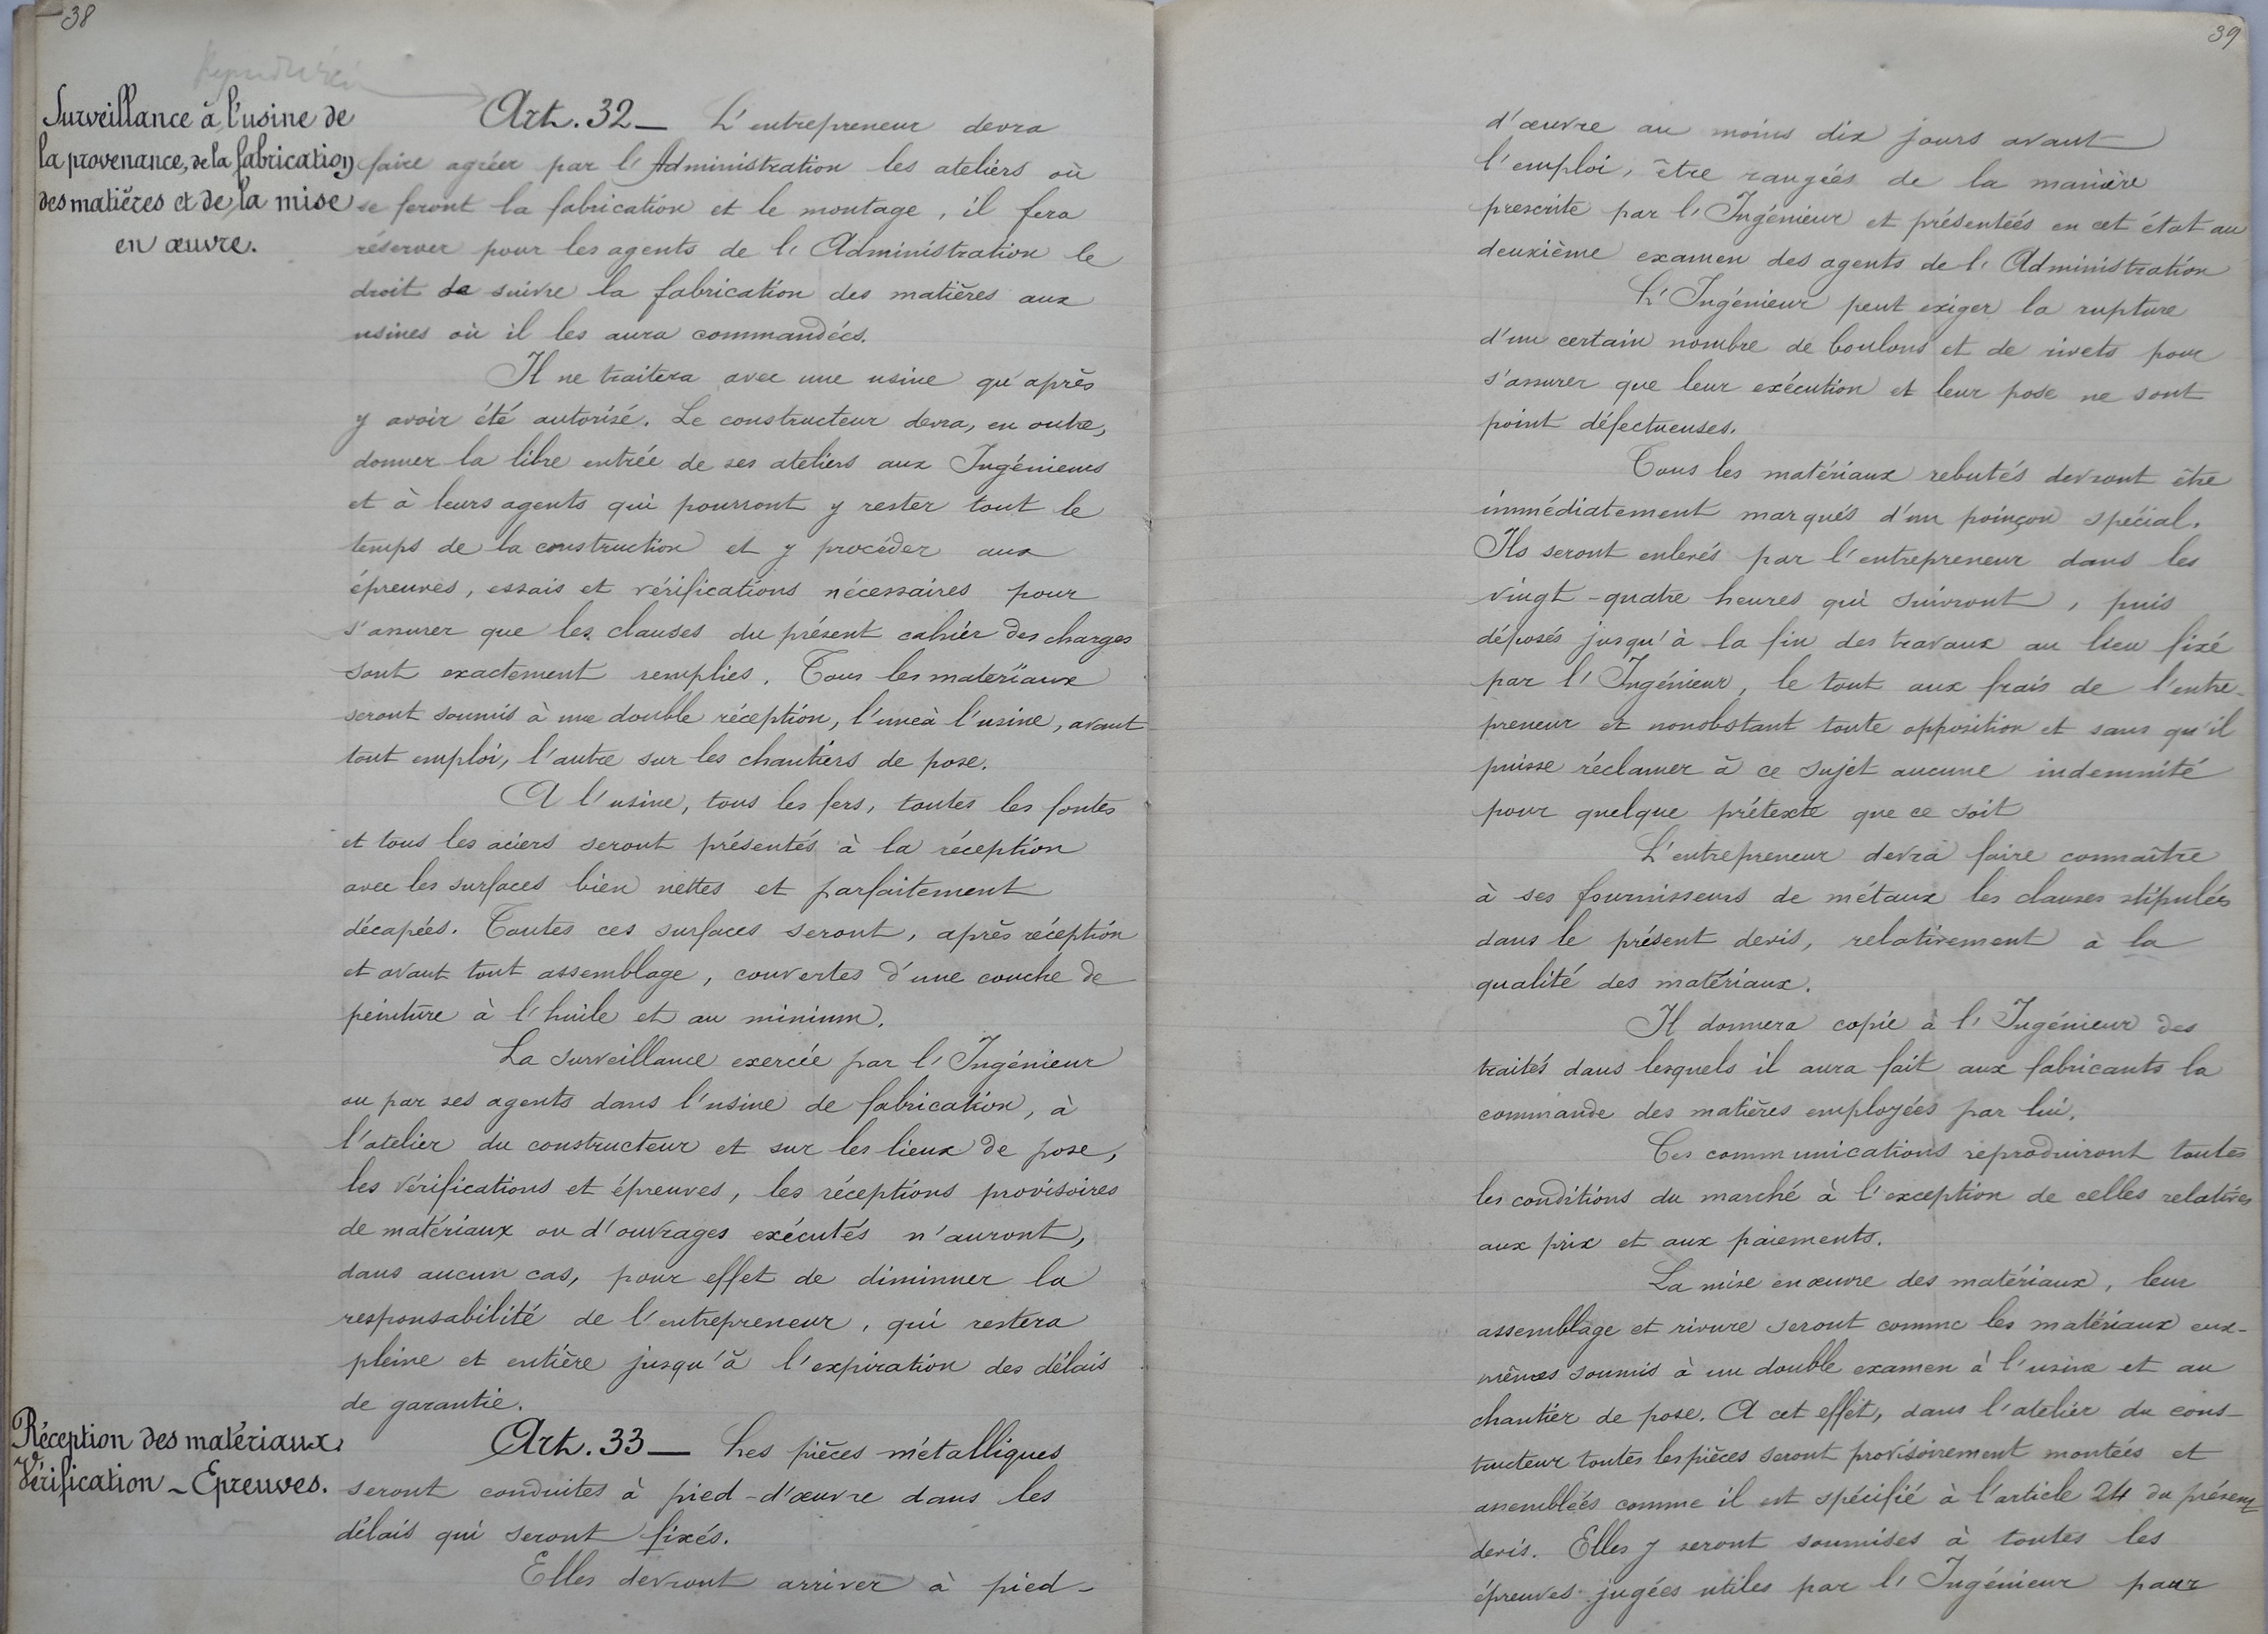 38
Surveillance à l'usine de
la provenance, de la fabrication
des matières et de la mise
en œuvre.
Art. 32 — L'entrepreneur devra
faire agréer par l'Administration les ateliers où
se feront la fabrication et le montage, il fera
réserver pour les agents de l'Administration le
droit de suivre la fabrication des matières aux
usines où il les aura commandées.
Il ne traitera avec une usine qu'après
y avoir été autorisé. Le constructeur devra, en outre,
donner la libre entrée de ses ateliers aux Ingénieurs
et à leurs agents qui pourront y rester tout le
temps de la construction et y procéder aux
épreuves, essais et vérifications nécessaires pour
s'assurer que les clauses du présent cahier des charges
sont exactement remplies. Tous les matériaux
seront soumis à une double réception, l'une à l'usine, avant
tout emploi, l'autre sur les chantiers de pose.
A l'usine, tous les fers, toutes les fontes
et tous les aciers seront présentés à la réception
avec les surfaces bien nettes et parfaitement
décapées. Toutes ces surfaces seront, après réception
et avant tout assemblage, couvertes d'une couche de
peinture à l'huile et au minium.
La surveillance exercée par l'Ingénieur
ou par ses agents dans l'usine de fabrication, à
l'atelier du constructeur et sur les lieux de pose,
les vérifications et épreuves, les réceptions provisoires
de matériaux ou d'ouvrages exécutés n'auront,
dans aucun cas, pour effet de diminuer la
responsabilité de l'entrepreneur, qui restera
pleine et entière jusqu'à l'expiration des délais
de garantie.
Réception des matériaux
Vérification - Epreuves.
Art. 33 — Les pièces métalliques
seront conduites à pied-d'œuvre dans les
délais qui seront fixés.
Elles devront arriver à pied-
39
d'œuvre au moins dix jours avant
l'emploi, être rangées de la manière
prescrite par l'Ingénieur et présentées en cet état au
deuxième examen des agents de l'Administration
L'Ingénieur peut exiger la rupture
d'un certain nombre de boulons et de rivets pour
s'assurer que leur exécution et leur pose ne sont
point défectueuses.
Tous les matériaux rebutés devront être
immédiatement marqués d'un poinçon spécial.
Ils seront enlevés par l'entrepreneur dans les
vingt-quatre heures qui suivront, puis
déposés jusqu'à la fin des travaux au lieu fixé
par l'Ingénieur, le tout aux frais de l'entre-
preneur et nonobstant toute opposition et sans qu'il
puisse réclamer à ce sujet aucune indemnité
pour quelque prétexte que ce soit
L'entrepreneur devra faire connaître
à ses fournisseurs de métaux les clauses stipulées
dans le présent devis, relativement à la
qualité des matériaux.
Il donnera copie à l'Ingénieur des
traités dans lesquels il aura fait aux fabricants la
commande des matières employées par lui.
Ces communications reproduiront toutes
les conditions du marché à l'exception de celles relatives
aux prix et aux paiements.
La mise en œuvre des matériaux, leur
assemblage et rivure seront comme les matériaux eux-
mêmes soumis à un double examen à l'usine et au
chantier de pose. A cet effet, dans l'atelier du cons-
tructeur toutes les pièces seront provisoirement montées et
assemblées comme il est spécifié à l'article 24 du présent
devis. Elles y seront soumises à toutes les
épreuves jugées utiles par l'Ingénieur pour